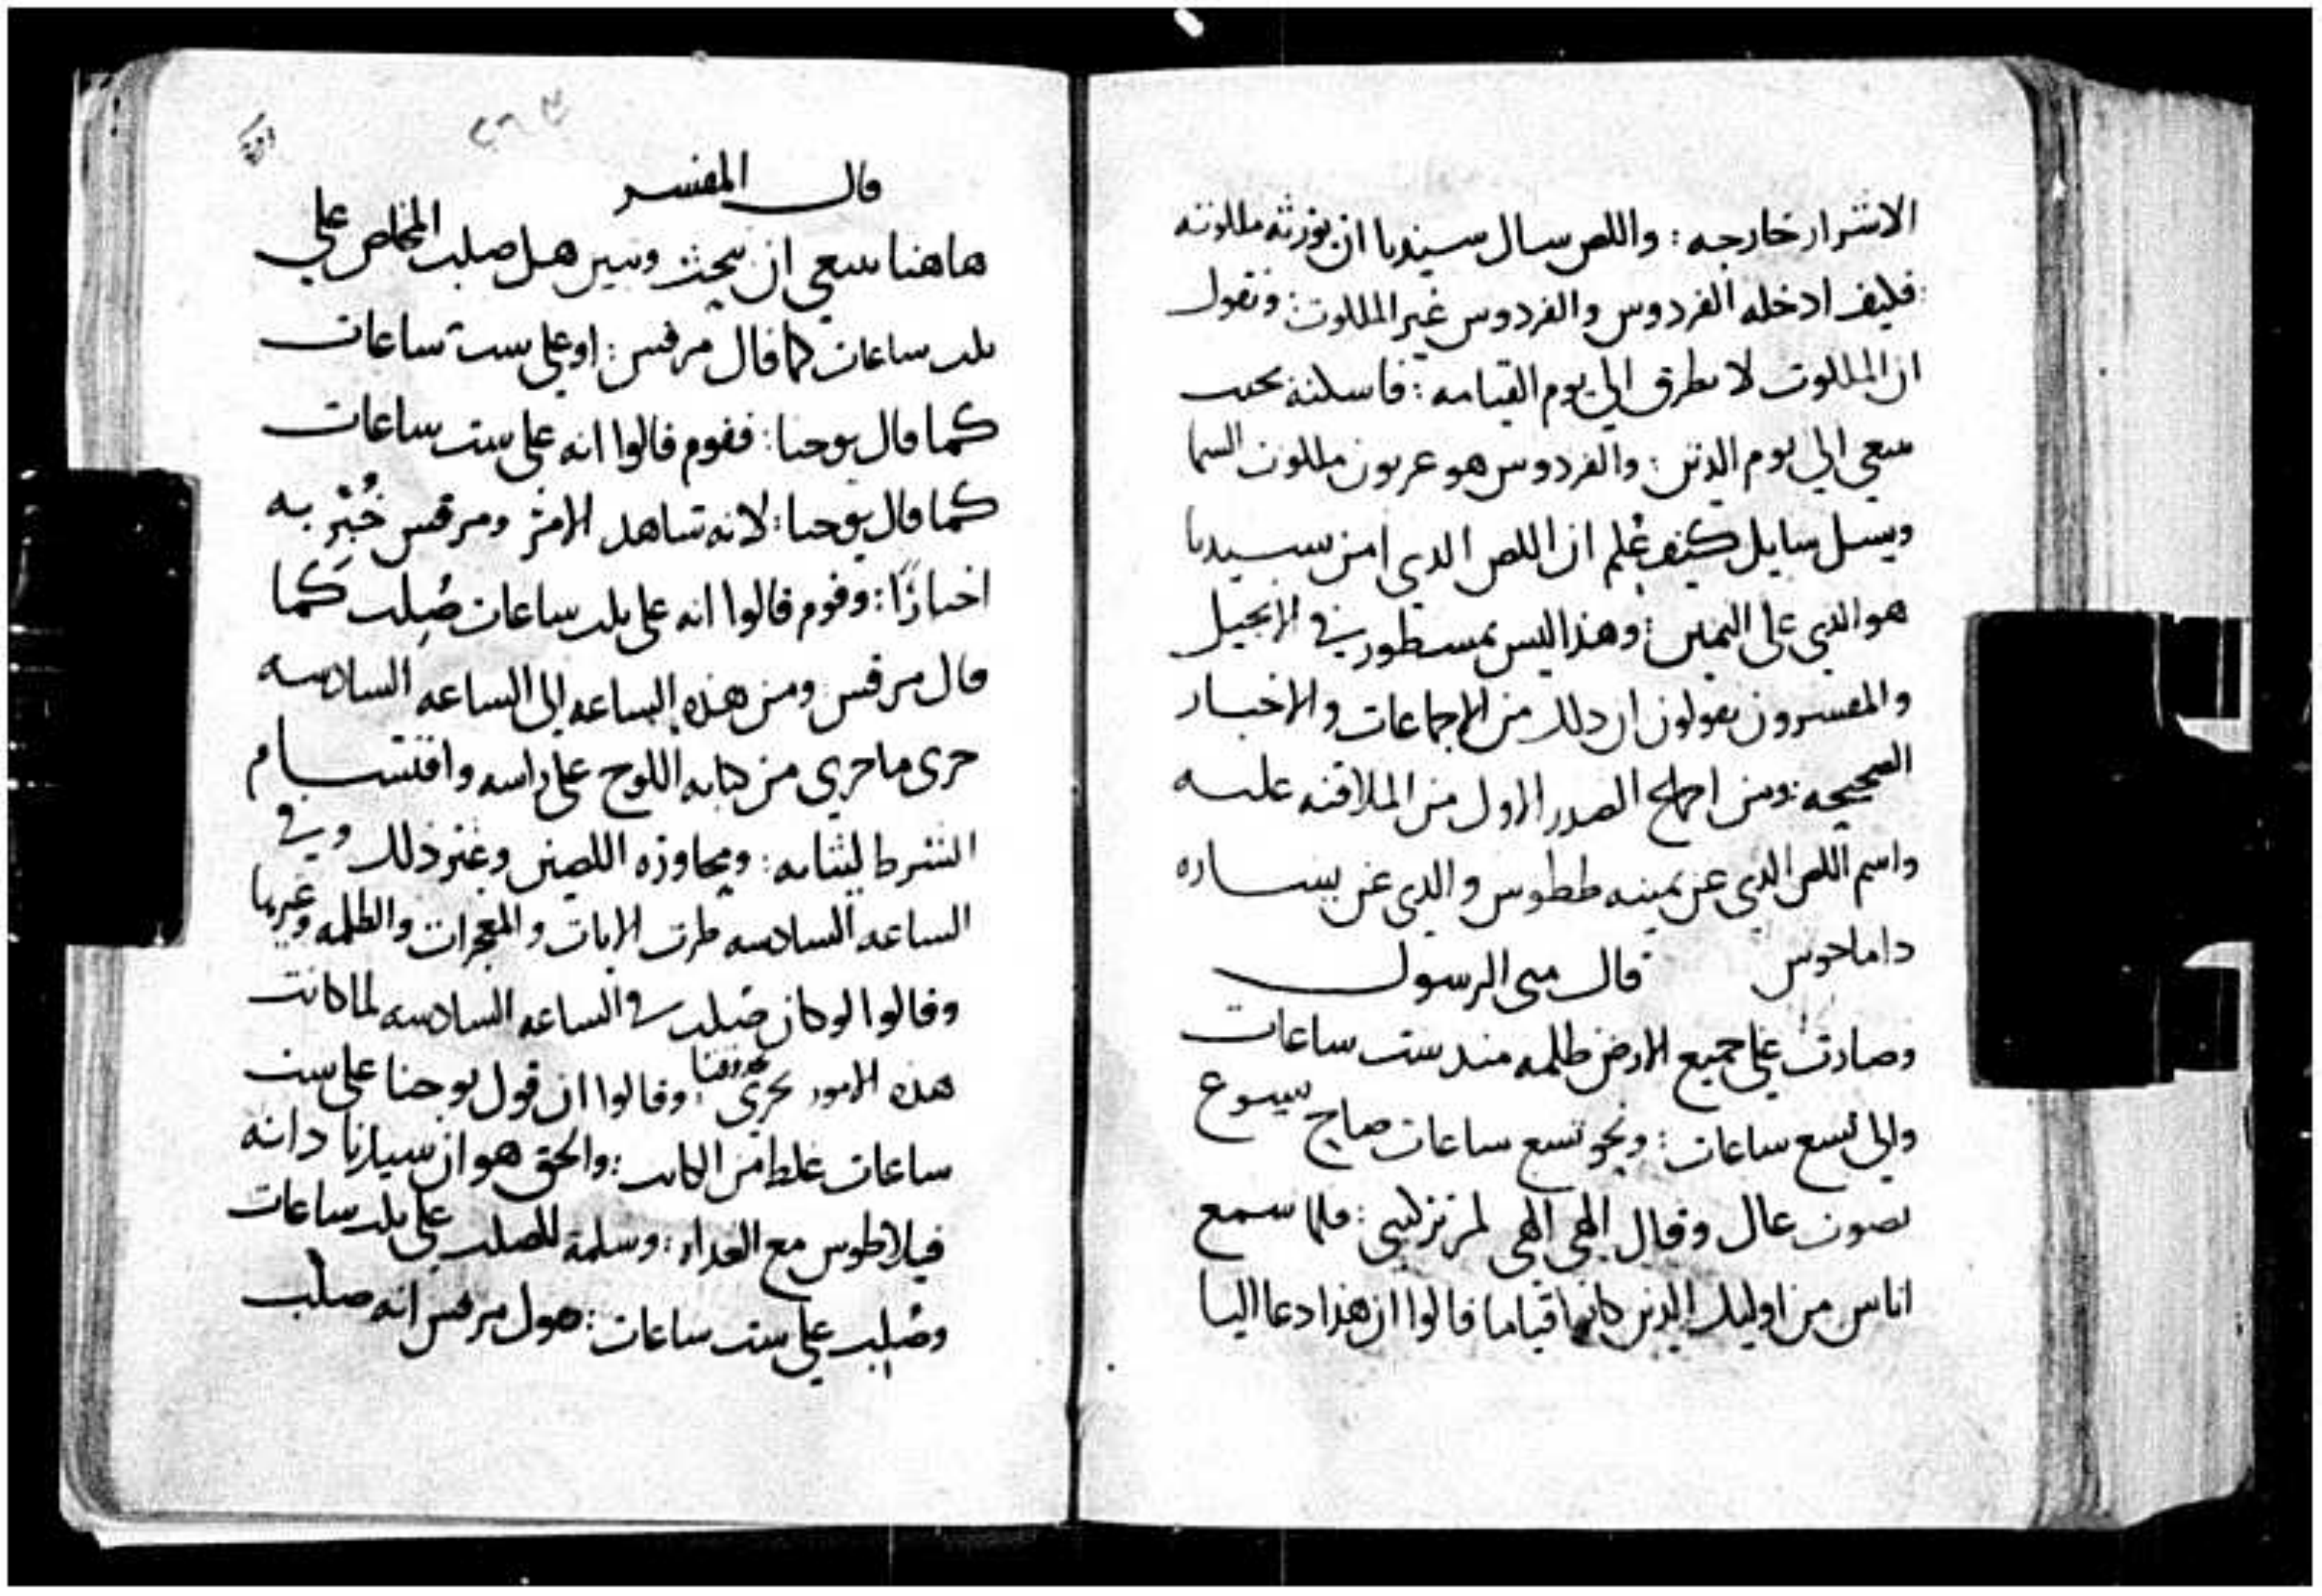 الاشرار خارجه : واللص سال سيدنا ان يورثه ملكوته
فكيف ادخله الفردوس والفردوس غير الملكوت : ونقول
ان الملكوت لا تطرق الي يوم القيامه : فاسكنه بحيث
ينبغي الي يوم الدين : والفردوس هو عربون ملكوت السما
ويسل سايل كيف علم ان اللص الدي امن بسيدنا
هو الدي علي اليمين : وهذا ليس بمسطور في الانجيل
والمفسرون يقولون ان دلك من الاجماعات والاخبار
الصحيحه : ومن اجماع الصدر الاول من الملافنه عليه
واسم اللص الدي عن يمينه ططوس والدي عن يساره
داماخوس قال متى الرسول
وصارت علي جميع الارض ظلمه مند ست ساعات
والي تسع ساعات : ونحو تسع ساعات صاح يسوع
بصوت عال وقال الهي الهي لم تركتني : فلما سمع
اناس من اوليك الدين كانوا قياما قالوا ان هذا دعا اليا
٢٦٣
قال المفسر
هاهنا ينبغي ان نبحث ونبين هل صلب المخلص علي
ثلث ساعات كما قال مرقس : او علي ست ساعات
كما قال يوحنا : فقوم قالوا انه علي ست ساعات
كما قال يوحنا : لانه شاهد الامر ومرقس خُبّر به
اخبارًا : وقوم قالوا انه علي ثلث ساعات صُلب كما
قال مرقس ومن هذه الساعه الى الساعه السادسه
جرى ما جري من كتابه اللوح على راسه واقتسام
الشرط لثيابه : ومجاوره اللصين وغير ذلك وفي
الساعه السادسه ظهرت الايات والمعجزات والظلمه وغيرها
وقالوا لو كان صُلب في الساعه السادسه لما كانت
هذه الامور تجري : وقالوا ان قول يوحنا على ست
ساعات غلط من الكاتب : والحق هو ان سيدنا دانه
فيلاطوس مع الغداه : وسلمه للصلب علي ثلث ساعات
وصُلب علي ست ساعات : فقول مرقس انه صلب